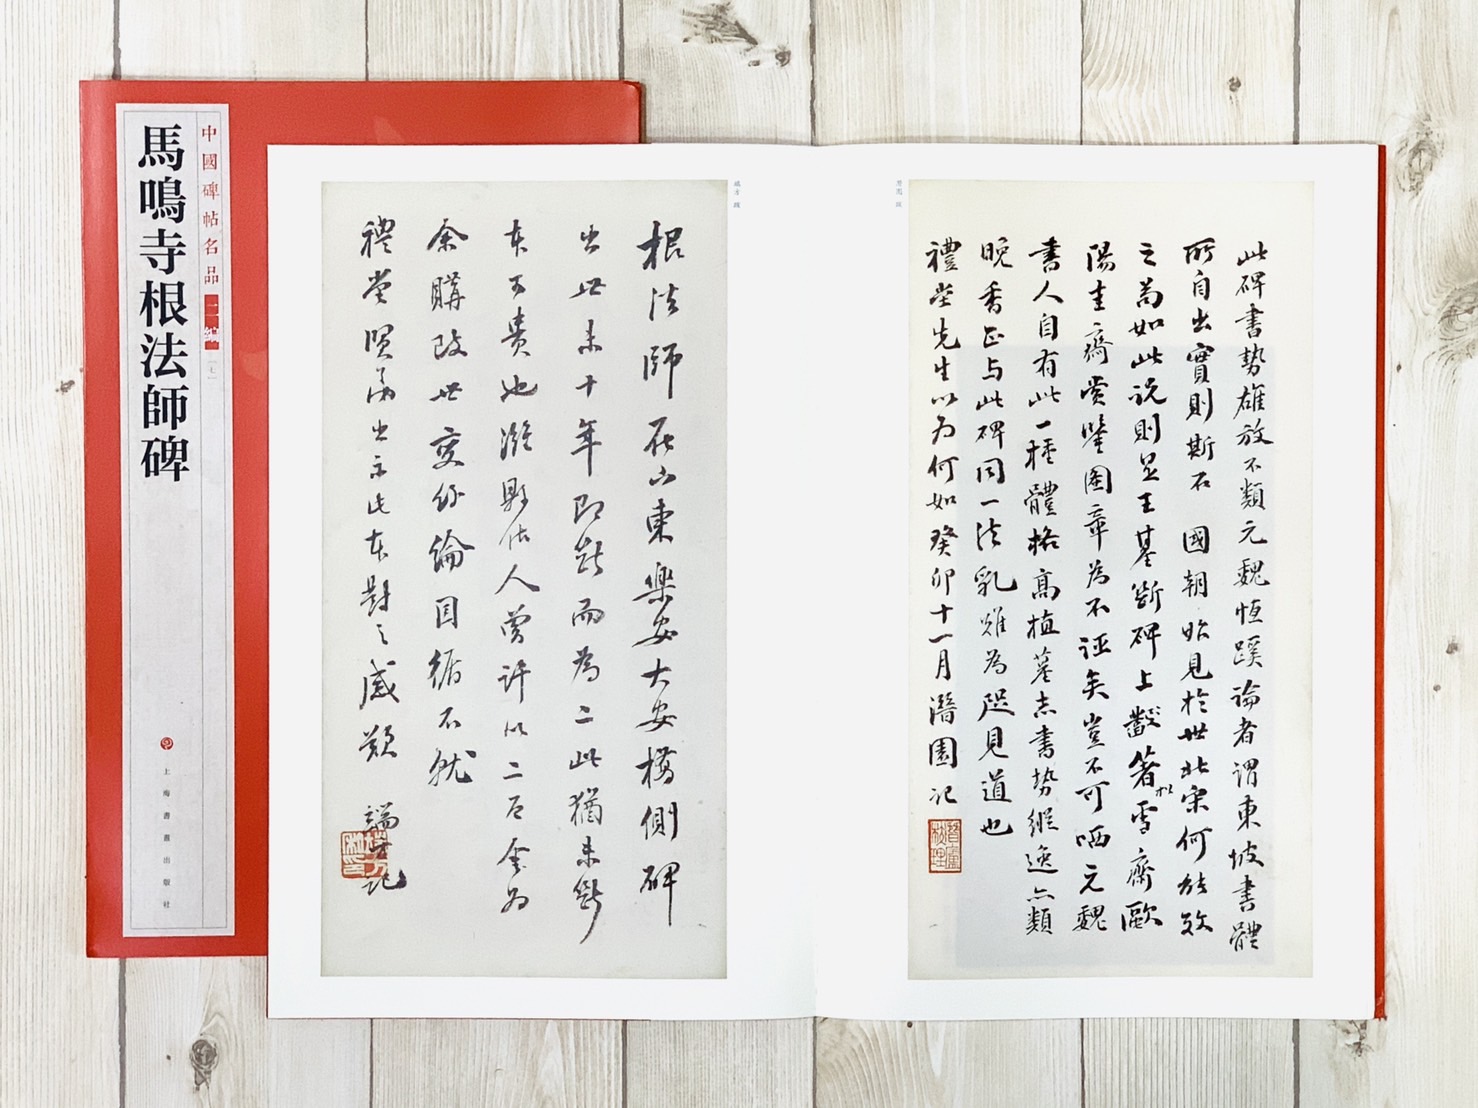 中國碑帖名品
二編
[七]
馬鳴寺根法師碑
上海書畫出版社
此碑書勢雄放不類元魏恒蹊論者謂東坡書體
所自出實則斯石 國朝始見於世北宋何能效
之為如此說則是王基斷碑上截箸松雪齋歐
陽圭齋賞鑒圖章為不誣矣豈不可哂元魏
書人自有此一種體格高植墓志書勢縱逸亦類
晚香正与此碑同一法乳難為咫見道也
禮堂先生以为何如癸卯十一月潛園記
根法師在山東樂安大安橋側碑
出世未十年即斷而為二此猶未斷
本可貴也濰縣估人曾許以二百金为
余購改世变紛綸因循不就
禮堂賢弟出示此本對之感歎
端方記
端方 跋